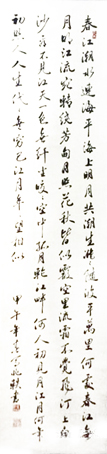 春江潮水連海平海上明月共潮生灩灩隨波千萬里何處春江無
月明江流宛轉繞芳甸月照花林皆似霰空里流霜不覺飛汀上白
沙看不見江天一色無纖塵皎皎空中孤月輪江畔何人初見月江月何年
初照人人生代代無窮已江月年年望相似 甲午年